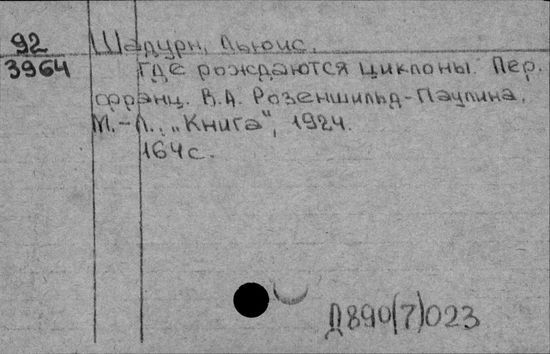 92 Шадурн, Льюис.
3964 Где рождаются циклоны. Пер.
франц. В.А. Розеншильд-Паулина.
М.-Л., "Книга", 1924.
164 с.
Д890(7)023